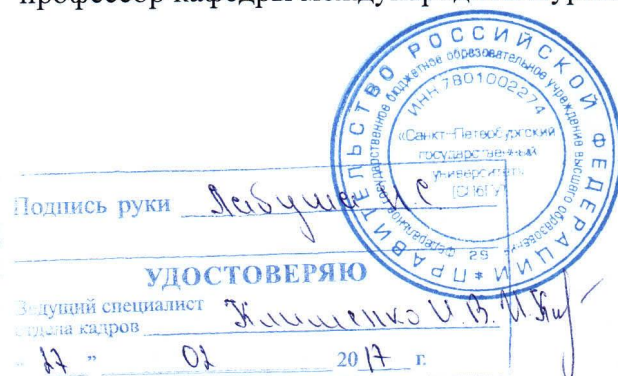 профессор кафедры международной
ПРАВИТЕЛЬСТВО РОССИЙСКОЙ ФЕДЕРАЦИИ *
Федеральное государственное бюджетное образовательное учреждение высшего образования
ИНН 7801002274
«Санкт-Петербургский
государственный
университет»
(СПбГУ)
29
Подпись руки Лабуша И.С
УДОСТОВЕРЯЮ
Ведущий специалист
отдела кадров Клименко И.В.
" 27 " 02 2017 г.